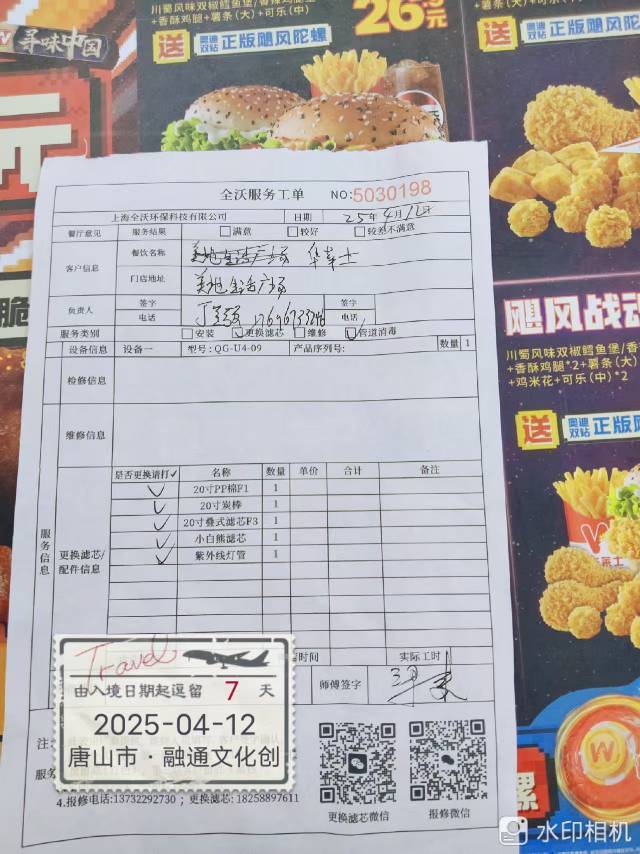 川蜀风味双椒鳕鱼堡/香辣鸡腿堡
+香酥鸡腿+薯条(大)+可乐(中)
26.9元
+薯条(大)+可乐(中)
寻味中国
送 奥迪双钻 正版飓风陀螺
送 奥迪双钻 正版飓风陀
全沃服务工单 NO:5030198
上海全沃环保科技有限公司 日期 25年4月12日
餐厅意见 服务结果 满意 较好 较差不满意
客户信息 餐饮名称 华莱士
门店地址 美地生活广场
负责人 签字 签字
电话 电话
服务类别 安装 更换滤芯 维修 管道消毒
设备信息 设备一 型号: QG-U4-09 产品序列号: 数量 1
检修信息
维修信息
服务信息
更换滤芯/配件信息
是否更换请打✓ 名称 数量 单价 合计 备注
✓ 20寸PP棉F1 1
✓ 20寸炭棒 1
✓ 20寸叠式滤芯F3 1
✓ 小白熊滤芯 1
✓ 紫外线灯管 1
时间 实际工时
师傅签字
Travel
由入境日期起逗留 7 天
2025-04-12
唐山市·融通文化创
注
服务
4.报修电话:13732292730 ; 更换滤芯: 18258897611
更换滤芯微信 报修微信
脆
飓风战
川蜀风味双椒鳕鱼堡/香
+香酥鸡腿*2+薯条(大)
+鸡米花+可乐(中)*2
送 奥迪双钻 正版
螺
水印相机